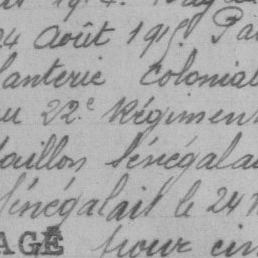 24 Août 1915. Pa
anterie Colonial
au 22.e Régimen
aillon Sénégalai
Sénégalais le 24
AGÉ pour cin